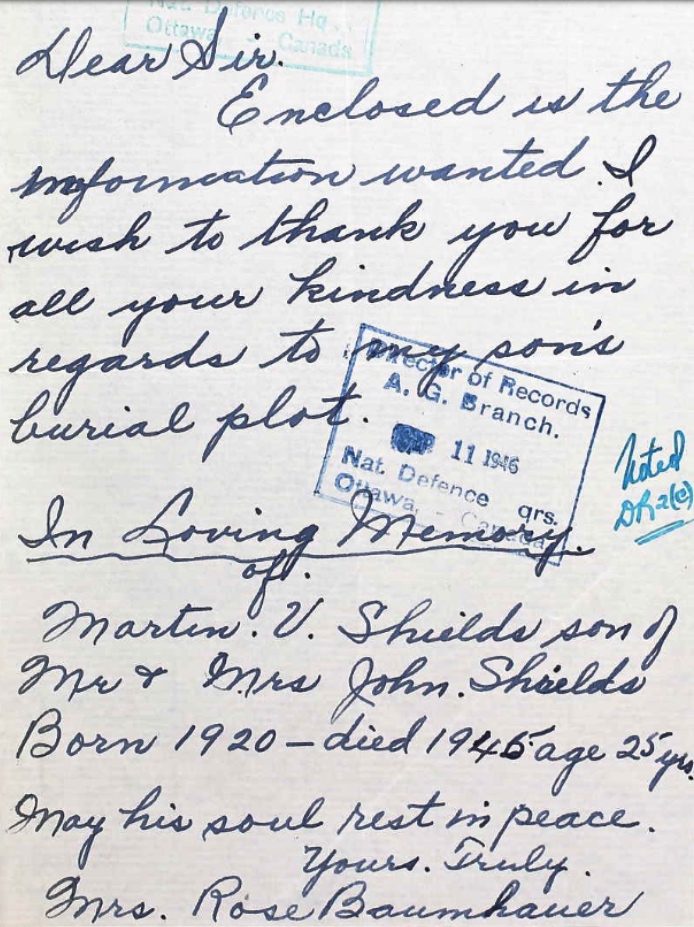 Nat. Defence Hq.
Ottawa - Canada
Dear Sir.
Enclosed is the
information wanted. I
wish to thank you for
all your kindness in
regards to my son's
burial plot.
Director of Records
A. G. Branch.
11 1946
Nat. Defence qrs.
Ottawa - Canada
Noted
In Loving Memory.
of.
Martin. V. Shields son of
Mr & Mrs John. Shields
Born 1920 - died 1945 age 25 yrs.
May his soul rest in peace.
Yours. Truly.
Mrs. Rose Baumhauer